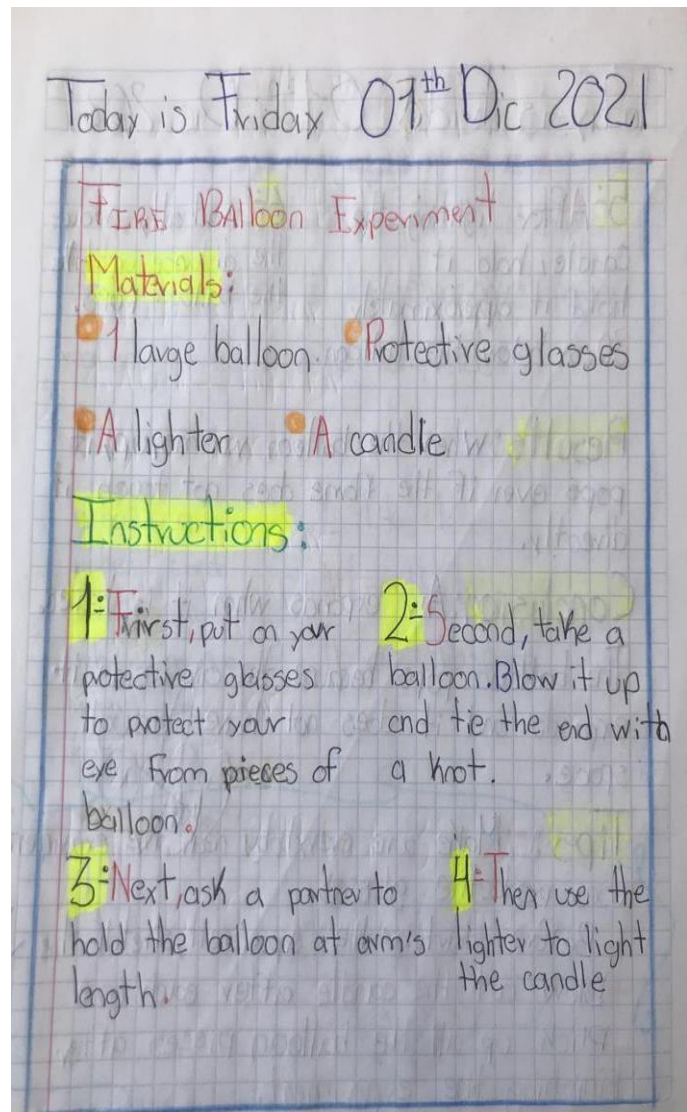 Today is Friday 01th Dic 2021
FIRE BAlloon Experiment
Materials:
1 large balloon. Protective glasses
A lighter A candle
Instructions:
1- First, put on your
potective glasses
to protect your
eye from pieces of
balloon.
2- Second, take a
balloon. Blow it up
and tie the end with
a knot.
3- Next, ask a partner to
hold the balloon at arm's
length.
4- Then use the
lighter to light
the candle